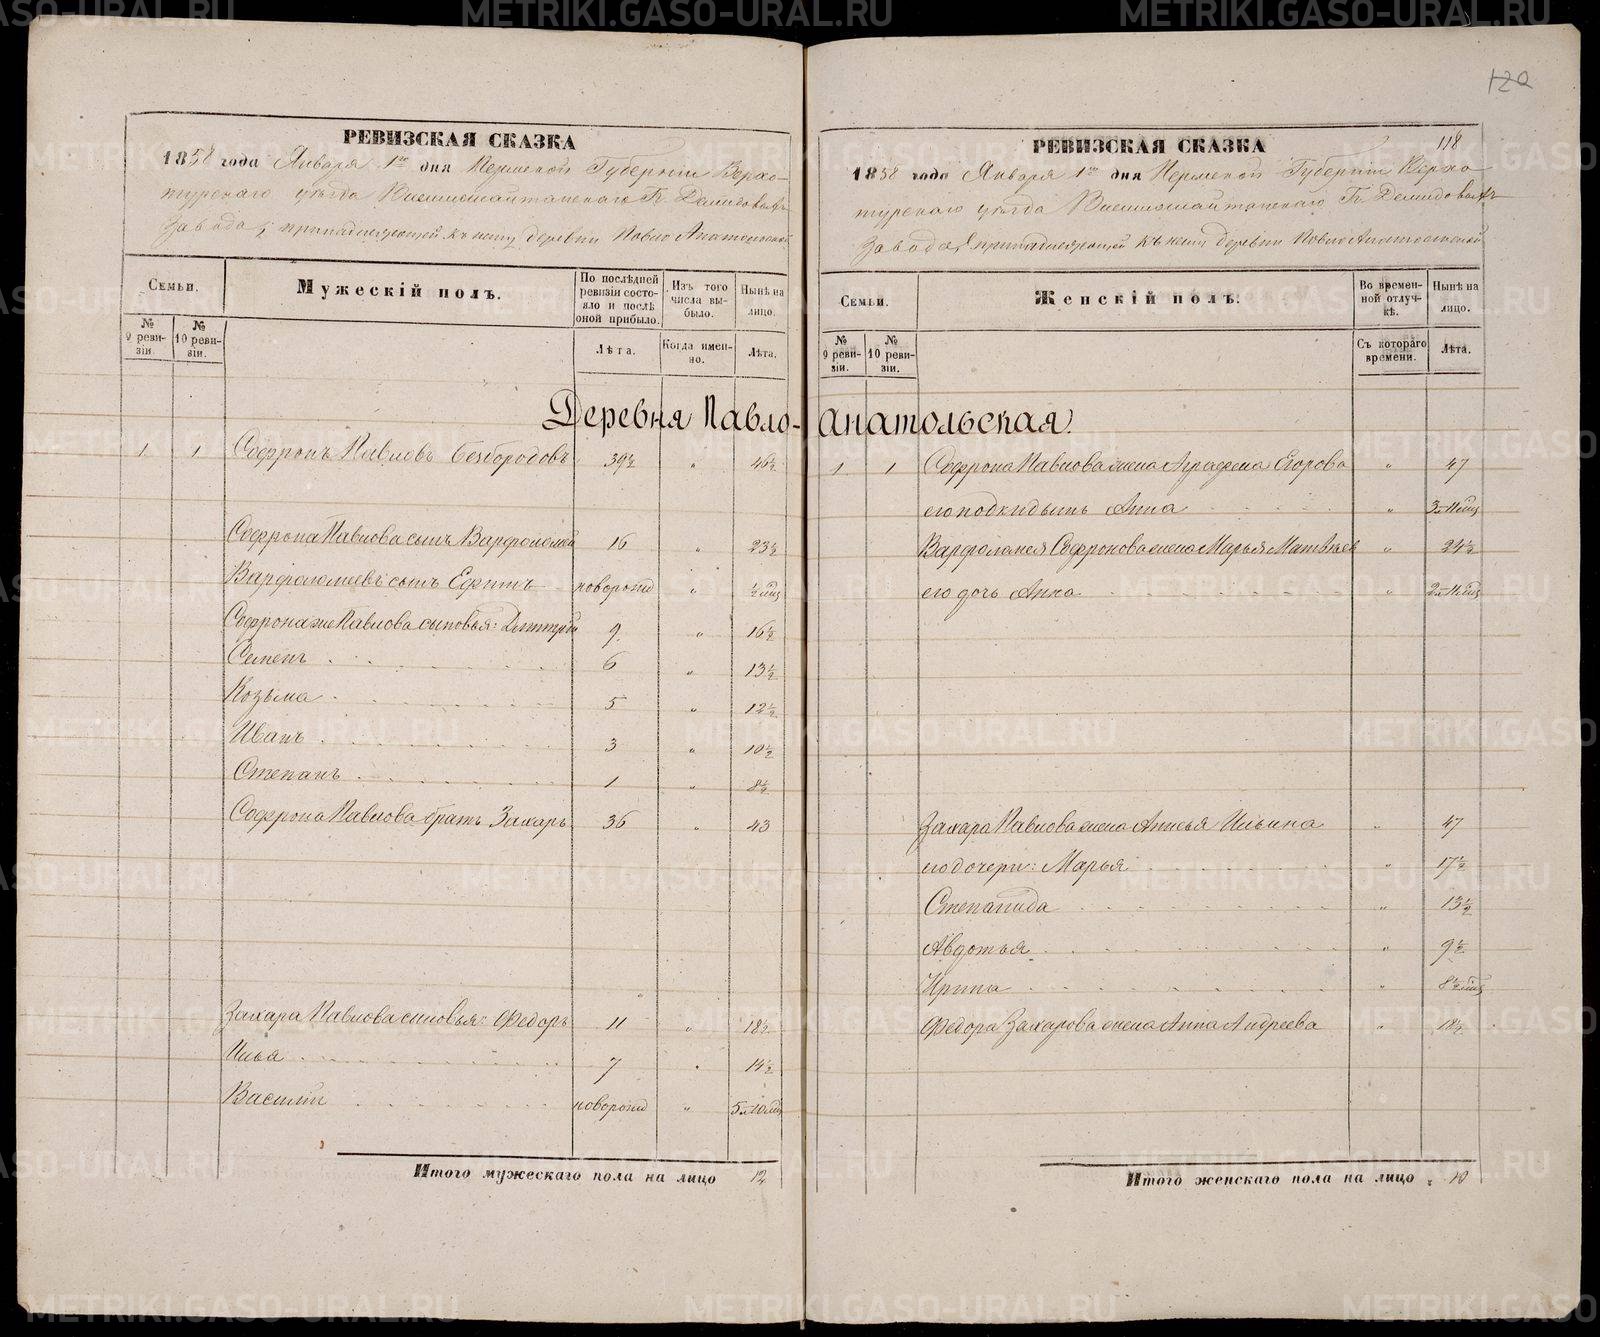 120
РЕВИЗСКАЯ СКАЗКА
1858 года Января 1го дня Пермской Губернии Верхо-
турскаго уѣзда Висимошайтанскаго Гг. Демидовыхъ
Завода, принадлежащей къ нему деревни Павло Анатольской
Семьи. Мужескій полъ. По послѣдней ревизіи состояло и послѣ оной прибыло. Изъ того числа выбыло. Нынѣ на лицо.
№ 9 ревизіи. № 10 ревизіи. Лѣта. Когда именно. Лѣта.
Деревня Павло-Анатольская.
1 1 Софронъ Павловъ Безбородовъ 39½ „ 46½
Софрона Павлова сынъ Варфоломей 16 „ 23½
Варфоломеевъ сынъ Ефимъ новорожд „ ½ мѣц
Софрона же Павлова сыновья: Дмитрій 9 „ 16½
Семенъ 6 „ 13½
Козьма 5 „ 12½
Иванъ 3 „ 10½
Степанъ 1 „ 8½
Софрона Павлова братъ Захаръ 36 „ 43
Захара Павлова сыновья: Федоръ 11 „ 18½
Илья 7 „ 14½
Василій новорожд „ 5л 10 мѣц
Итого мужескаго пола на лицо 12
118
РЕВИЗСКАЯ СКАЗКА
1858 года Января 1го дня Пермской Губерніи Верхо
турскаго уѣзда Висимошайтанскаго Гг. Демидовыхъ
Завода, принадлежащей къ нему деревни Павло Анатольской
Семьи. Женскій полъ. Во временной отлучкѣ. Нынѣ на лицо.
№ 9 ревизіи. № 10 ревизіи. Съ котораго времени. Лѣта.
1 1 Софрона Павлова жена Аграфена Егорова „ 47
его подкидышъ Анна „ 3л 11 мѣц
Варфоломея Софронова жена Марья Матвѣева „ 24½
его дочь Анна „ 2л 11 мѣц
Захара Павлова жена Анисья Ильина „ 47
его дочери: Марья „ 17½
Степанида „ 13½
Авдотья „ 9½
Ирина „ 8½ мѣц
Федора Захарова жена Анна Андреева „ 18½
Итого женскаго пола на лицо 10
METRIKI.GASO-URAL.RU